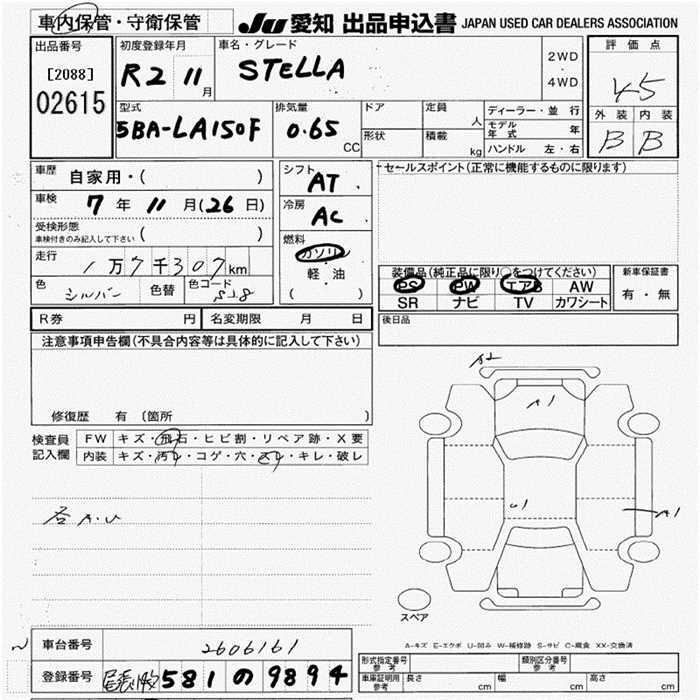 車内保管・守衛保管 JU 愛知 出品申込書 JAPAN USED CAR DEALERS ASSOCIATION
出品番号 初度登録年月 車名・グレード 評価点
[2088] R2 11月 STELLA 2WD・4WD 4.5
02615 外装 内装
B B
型式 排気量 ドア 定員 人 ディーラー・並行
5BA-LA150F 0.65 CC 形状 積載 kg モデル年式 年
ハンドル 左・右
車歴 自家用・( ) シフト AT セールスポイント(正常に機能するものに限ります)
車検 7年 11月(26日) 冷房 AC
受検形態 ( )
車検付きのみ記入して下さい
燃料 ガソリン
軽・油
( )
走行 1万7千307km
色 シルバー 色替 色コード S28
装備品(純正品に限り○をつけてください) 新車保証書
PS PW エアB AW 有・無
SR ナビ TV カワシート
R券 円 名変期限 月 日 後日品
注意事項申告欄(不具合内容等は具体的に記入して下さい)
修復歴 有 (箇所 )
検査員記入欄 FW キズ・飛石・ヒビ割・リペア跡・X要
内装 キズ・汚レ・コゲ・穴・スレ・キレ・破レ
A2
A1
U1
A1
スペア
A-キズ E-エクボ U-凹み W-補修跡 S-サビ C-腐食 XX-交換済
車台番号 2606161
登録番号 尾張小牧 581 の 9894
形式指定番号 参考 類別区分番号 参考
車庫証明用 参考 長さ cm 幅 cm 高さ cm